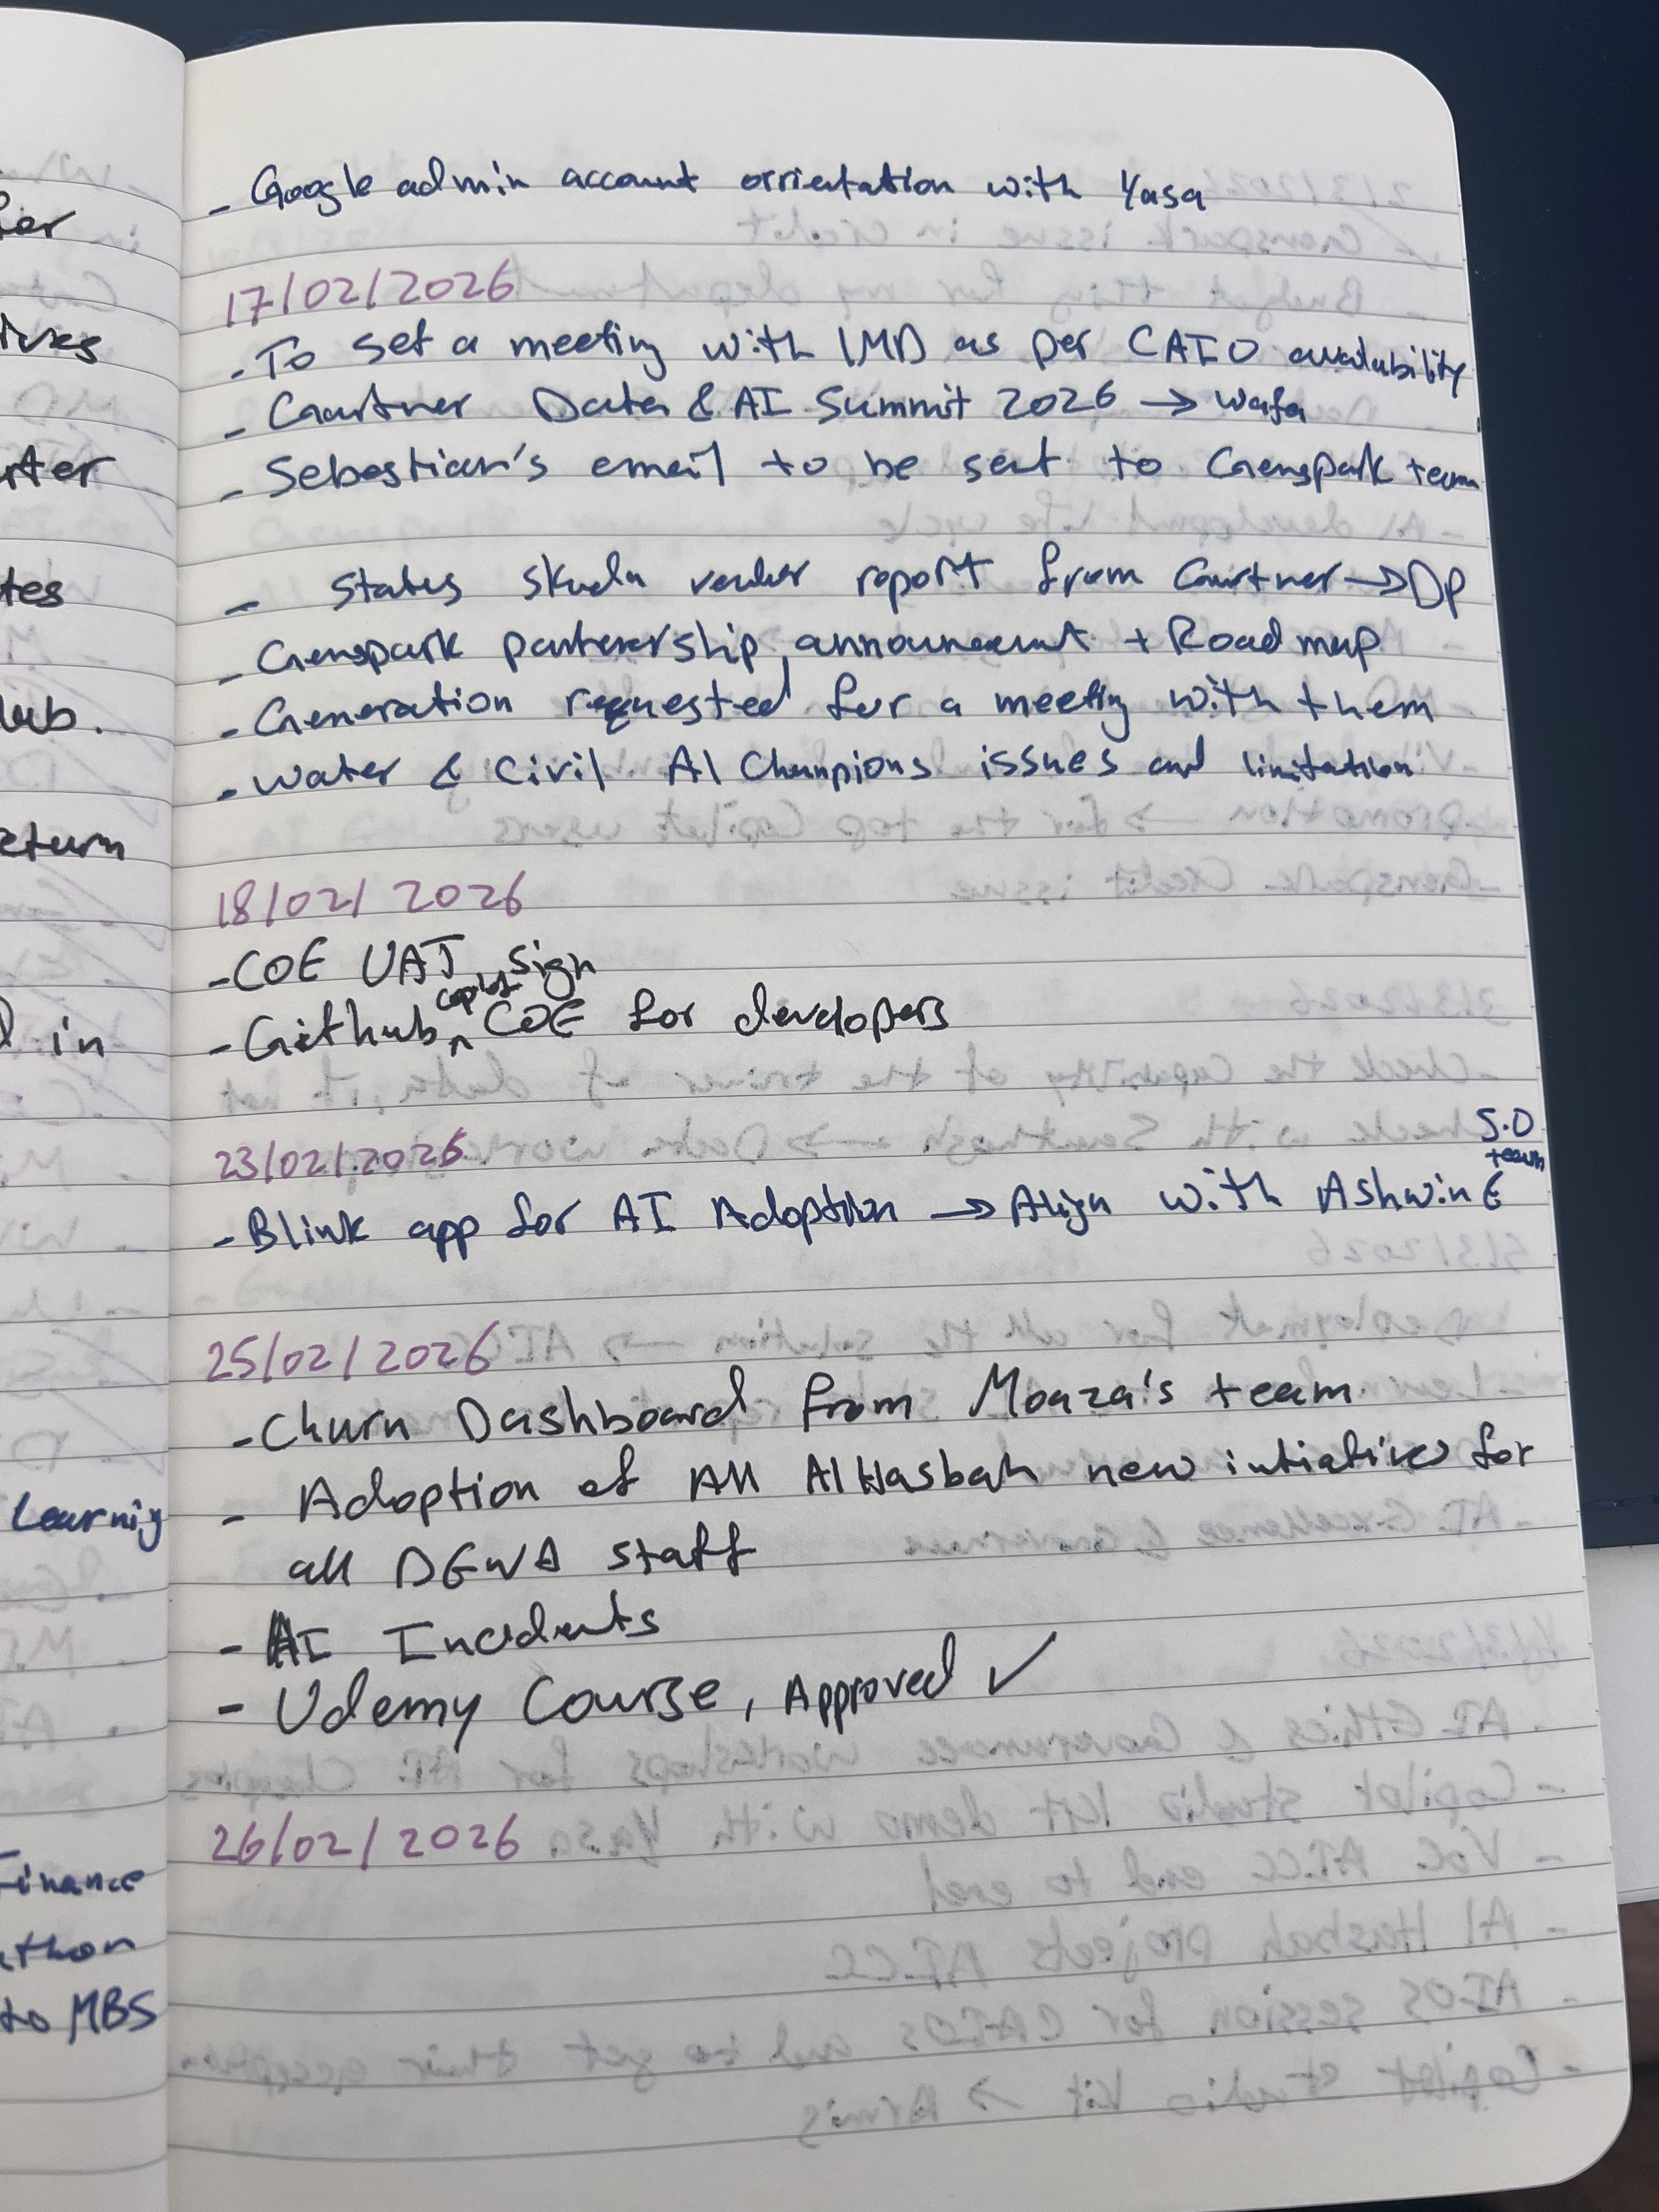 - Google admin account orrientation with Yasa
17/02/2026
- To set a meeting with IMD as per CAIO availability
- Gartner Data & AI Summit 2026 → Wafa
- Sebastian's email to be sent to Genspark team
- status vendor report from Gartner → DP
- Genspark partnership announcement + Road map
- Generation requested for a meeting with them
- Water & Civil AI Champions issues and limitation
18/02/2026
- COE UAT sign
- Github copilot COE for developers
23/02/2026
- Blink app for AI Adoption → Align with Ashwin &
S.D
team
25/02/2026
- Churn Dashboard from Moaza's team.
- Adoption of All AlHasbah new intiatives for
all DEWA staff
- AI Incidents
- Udemy Course, Approved ✓
26/02/2026
ter
tes
eturn
in
Learnig
Finance
to MBS